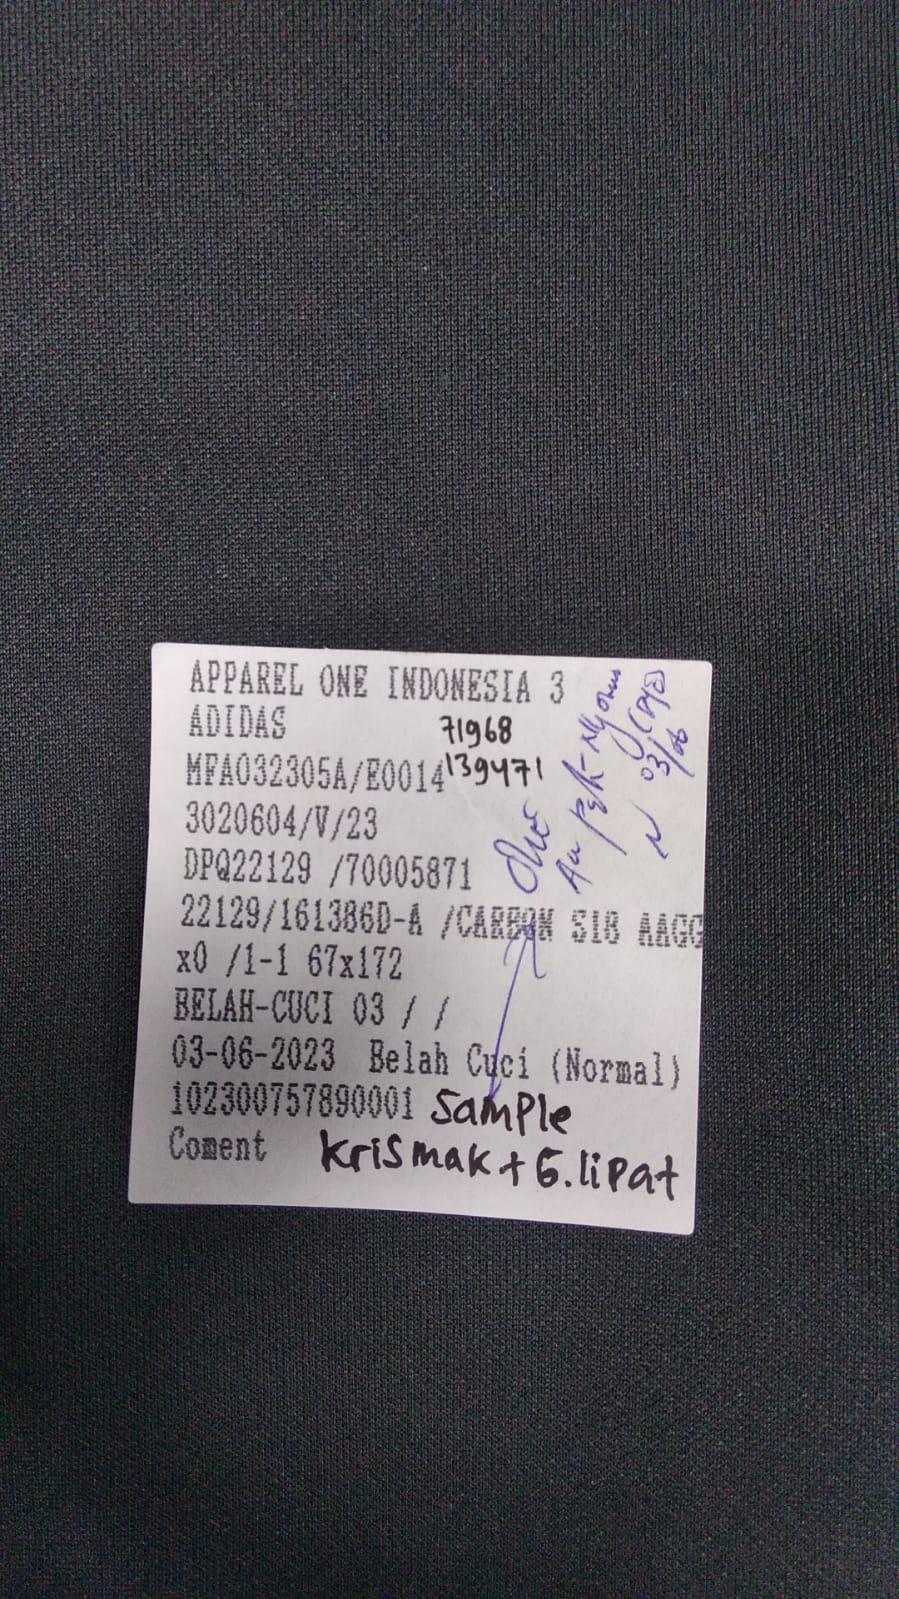 APPAREL ONE INDONESIA 3
ADIDAS 71968
MFA032305A/E0014 139471
3020604/V/23
DPQ22129 /70005871
22129/161386D-A /CARBON S18 AAGG
x0 /1-1 67x172
BELAH-CUCI 03 / /
03-06-2023 Belah Cuci (Normal)
102300757890001 Sample
Coment Krismak + G.lipat
03/06